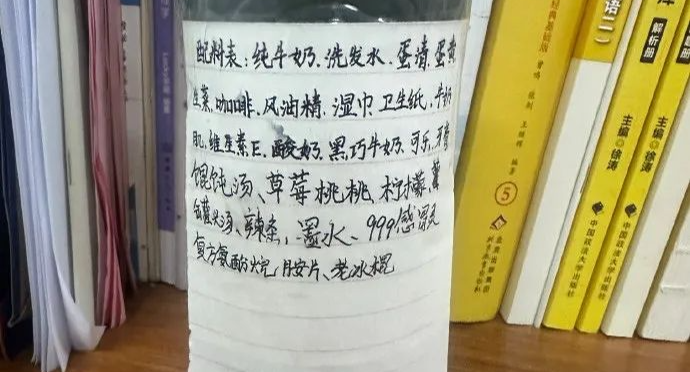 配料表：纯牛奶、洗发水、蛋清、蛋黄
生菜、咖啡、风油精、湿巾、卫生纸、牛奶
肌、维生素E、酸奶、黑巧牛奶、可乐、牙膏
馄饨汤、草莓桃桃、柠檬薯
汤、辣条，墨水、999感冒灵
复方氨酚烷胺片、老冰棍
经典基础篇
曾鸣
编著
5
语二
解析册
主编 徐涛
中国政法大学出版社
主编 徐涛
中国政法大学出版社